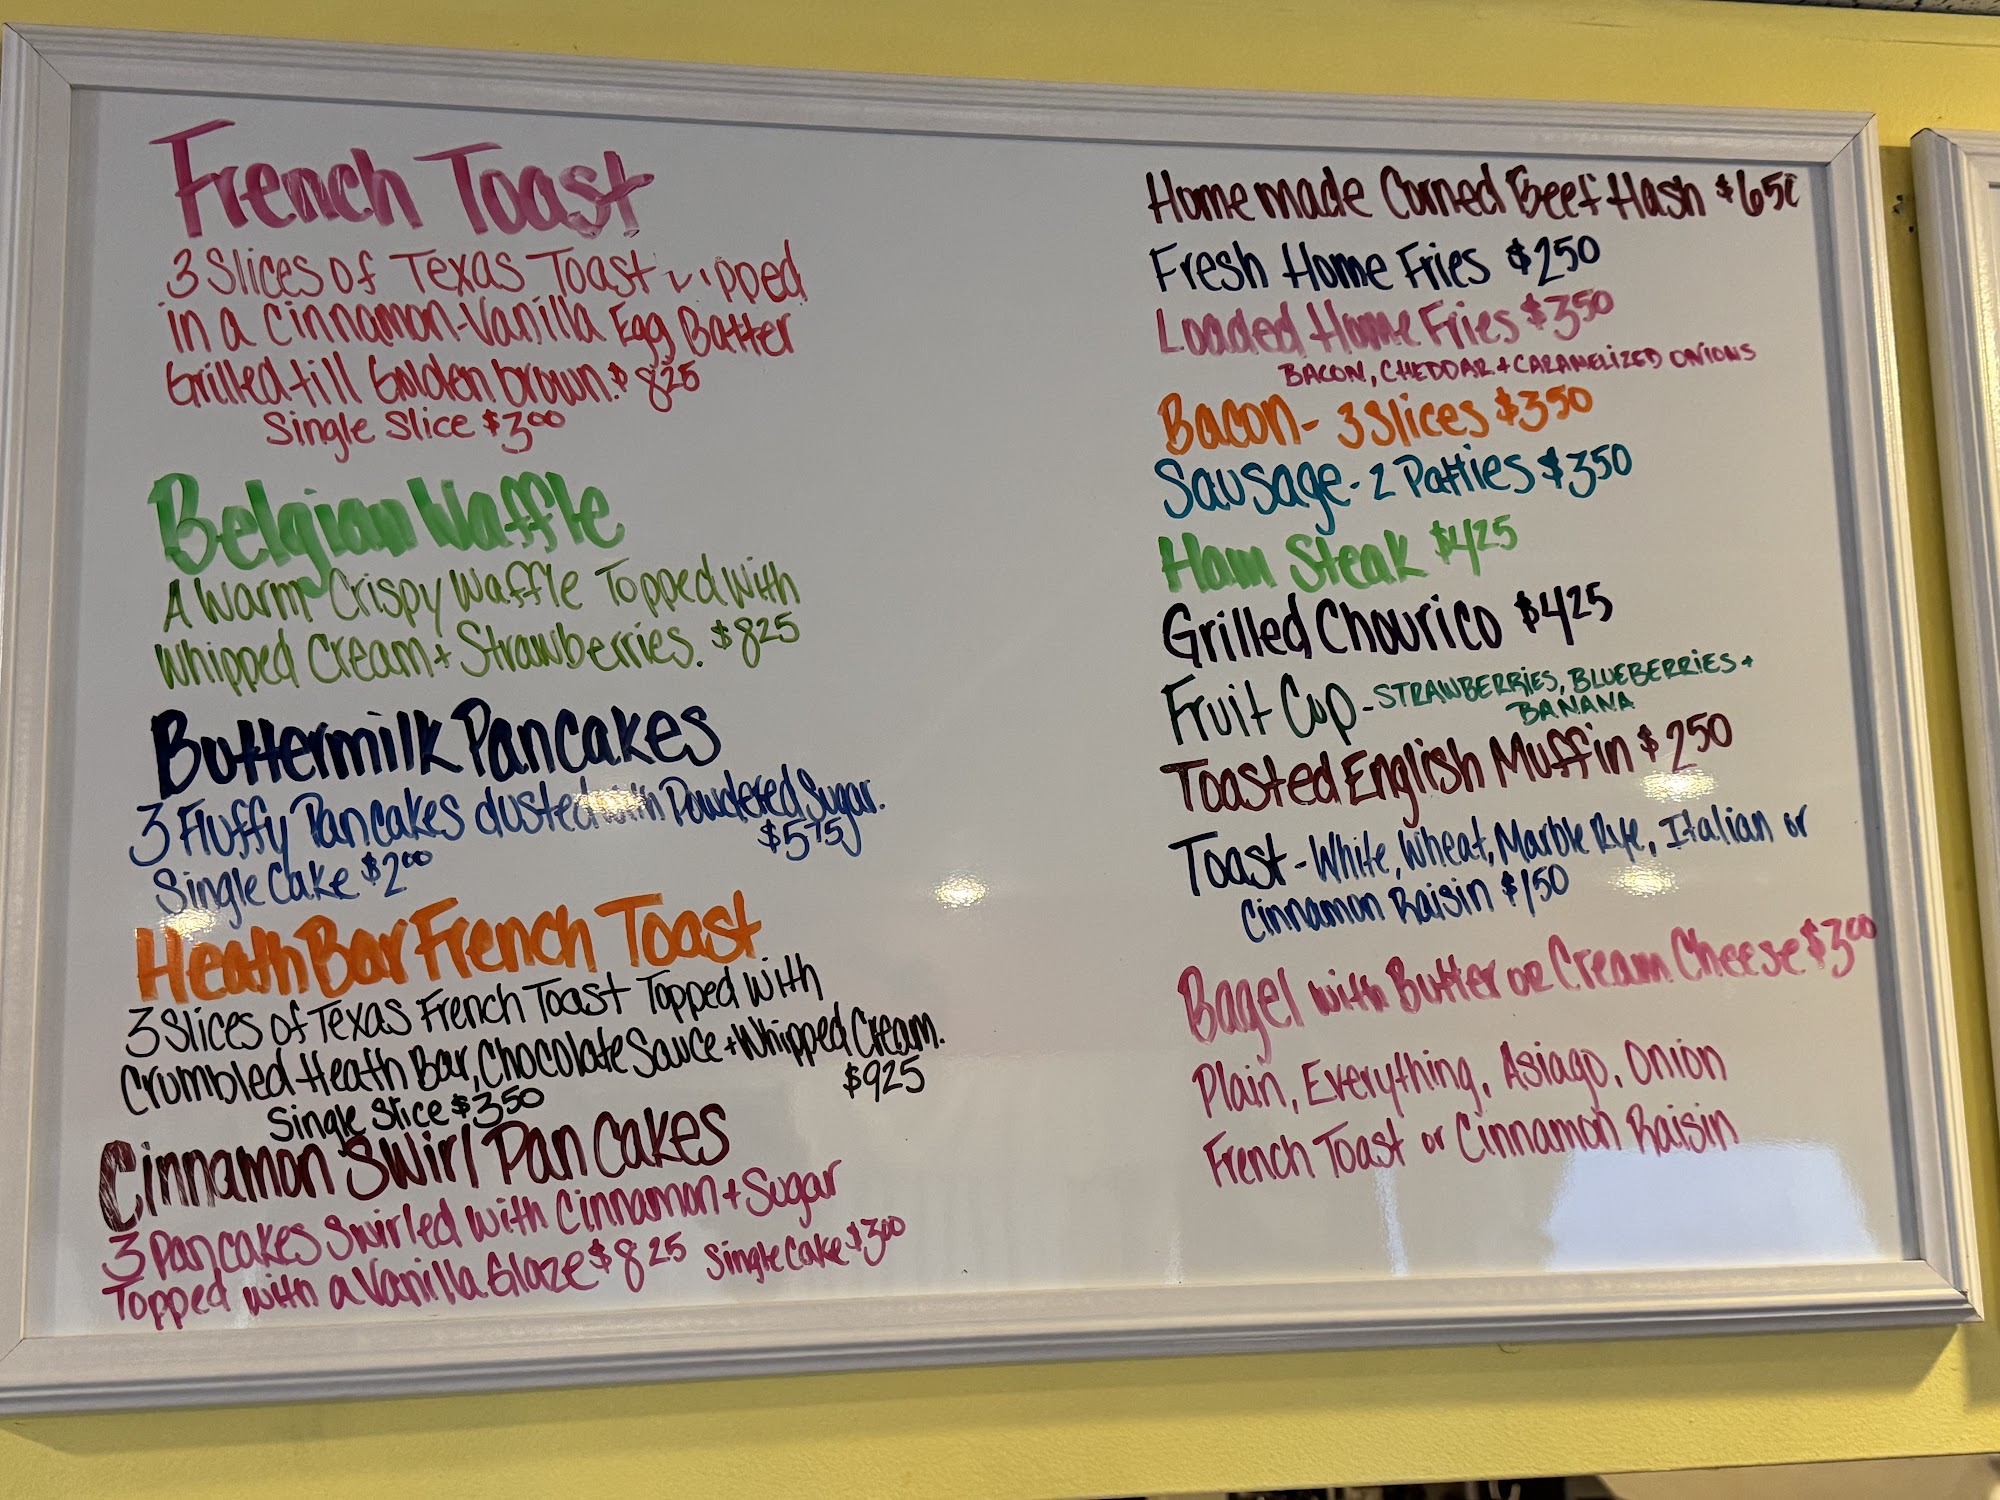 French Toast
3 Slices of Texas Toast
in a Cinnamon-Vanilla Egg Batter
Grilled till Golden brown. $825
Single Slice $300
Belgian Waffle
A Warm Crispy Waffle Topped with
Whipped Cream + Strawberries. $825
Buttermilk Pancakes
3 Fluffy Pancakes dusted with Powdered Sugar.
$575
Single Cake $200
Heath Bar French Toast
3 Slices of Texas French Toast Topped with
Crumbled Heath Bar, Chocolate Sauce + Whipped Cream.
$925
Single Slice $350
Cinnamon Swirl Pancakes
3 Pancakes Swirled with Cinnamon + Sugar
Topped with a Vanilla Glaze $825 Single Cake $300
Homemade Corned Beef Hash
Fresh Home Fries $250
Loaded Home Fries $350
BACON, CHEDDAR + CARAMELIZED ONIONS
Bacon - 3 Slices $350
Sausage - 2 Patties $350
Ham Steak $425
Grilled Chourico $425
Fruit Cup - STRAWBERRIES, BLUEBERRIES +
BANANA
Toasted English Muffin $250
Toast - White, Wheat, Marble Rye, Italian or
Cinnamon Raisin $150
Bagel with Butter or Cream Cheese $300
Plain, Everything, Asiago, Onion
French Toast or Cinnamon Raisin